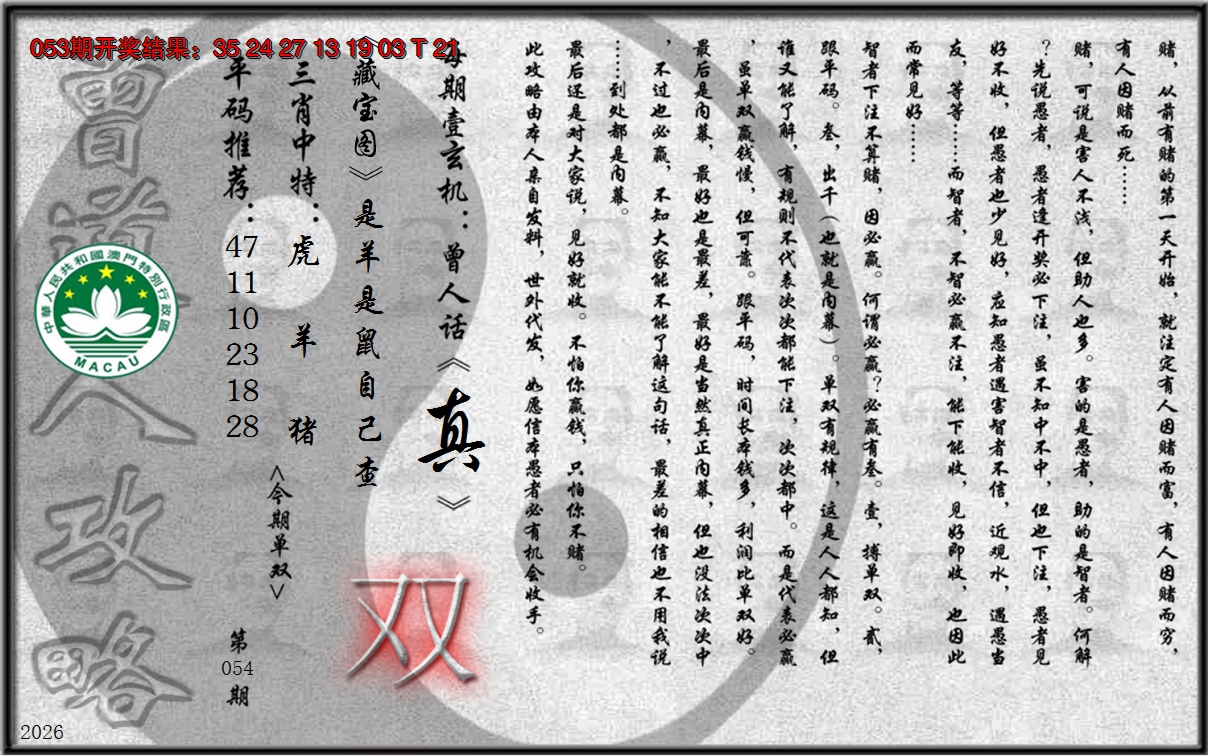 053期开奖结果：35 24 27 13 19 03 T 21
赌，从前有赌的第一天开始，就注定有人因赌而富，有人因赌而穷，
有人因赌而死……
赌，可说是害人不浅，但助人也多。害的是愚者，助的是智者。何解
？先说愚者，愚者逢开奖必下注，虽不知中不中，但也下注，愚者见
好不收，但愚者也少见好，应知愚者遇害智者不信，近观水，遇愚当
友，等等……而智者，不智必赢不注，能下能收，见好即收，也因此
而常见好……
智者下注不算赌，因必赢。何谓必赢？必赢有叁。壹，搏单双。贰，
跟平码。叁，出千（也就是内幕）。单双有规律，这是人人都知，但
谁又能了解，有规则不代表次次都能下注，次次都中。而是代表必赢
，虽单双赢钱慢，但可靠。跟平码，时间长本钱多，利润比单双好。
最后是内幕，最好也是最差，最好是当然真正内幕，但也没法次次中
，不过也必赢，不知大家能不能了解这句话，最差的相信也不用我说
……到处都是内幕。
最后还是对大家说，见好就收。不怕你赢钱，只怕你不赌。
此攻略由本人亲自发料，世外代发，如愿信本愚者必有机会收手。
每期壹玄机：曾人话《真》
《藏宝图》是羊是鼠自己查
双
三肖中特：虎 羊 猪
<今期单双>
平码推荐：
47
11
10
23
18
28
第
054
期
曾道人攻略
中華人民共和國澳門特別行政區
MACAU
2026